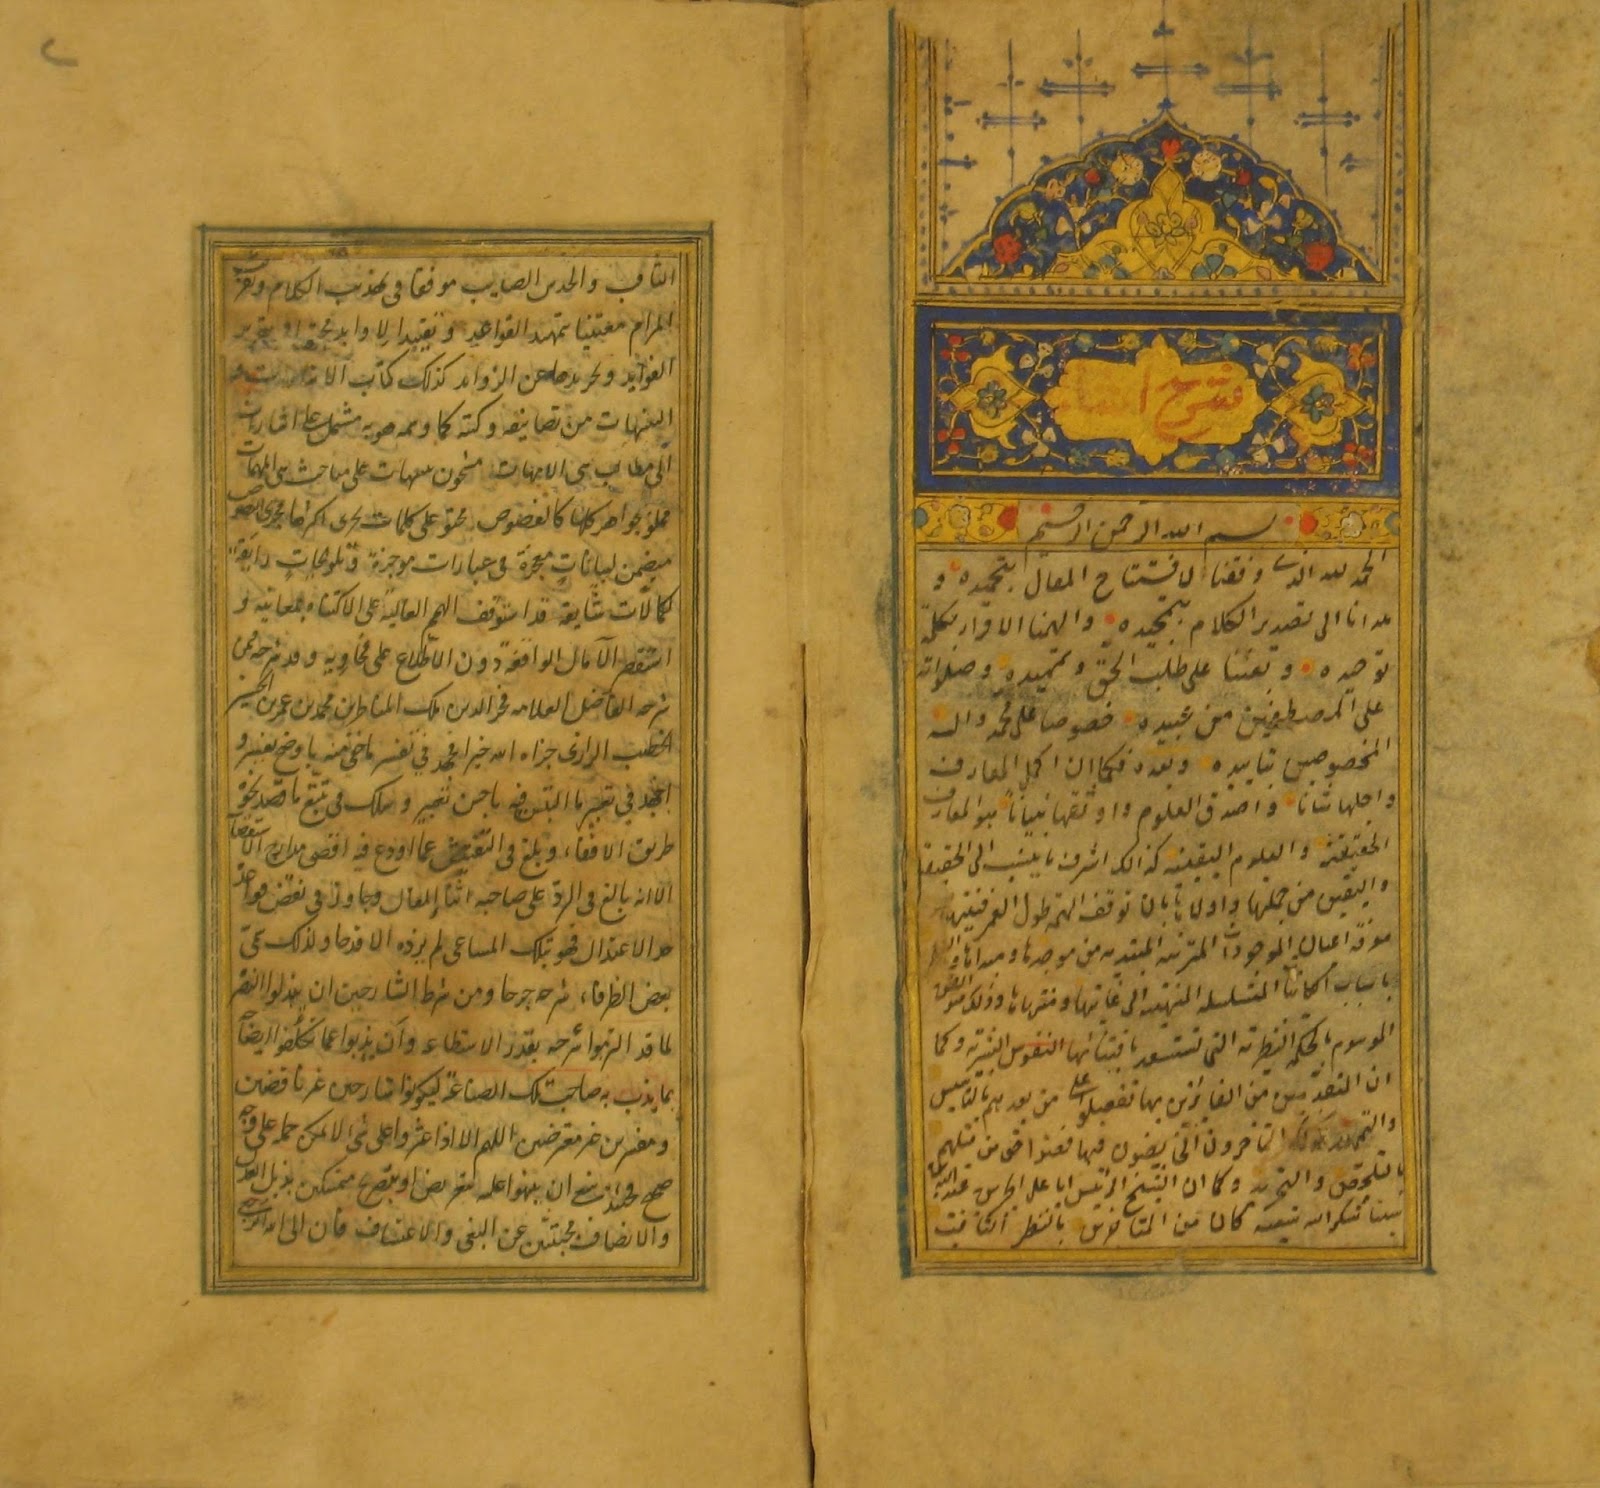 شرح
بسم الله الرحمن الرحيم
الحمد لله الذي وفقنا لافتتاح المقال بتحميده و
هدانا الى تصدير الكلام بتمجيده والهمنا الاقرار بكلمة
توحيده وبعثنا على طلب الحق وتمهيده وصلواته
على المصطفين من عبيده خصوصا على محمد واله
المخصوصين بتاييده وبعد فكما ان اكمل المعارف
واجلها شانا واصدق العلوم واوثقها تبيانا هو المعارف
الحقيقية والعلوم اليقينية كذلك اشرف ما ينسب الى الحقيقة
واليقين من جملتها واولاها بان توقف الهمة طول العمر
اعيان الموجودات المترتبة المبتدية من موجدها ومبداها
المتسلسلة المنتهية الى غايتها ومنتهاها وذلك هو الفن
الموسوم بالحكمة النظرية التي تستعد باقتنائها النفوس البشرية وكما
ان المتقدمين من الفائزين بها تفضلوا على من بعدهم بالتاسيس
والتمهيد المتاخرون الخايضون فيها قضوا حق من قبلهم
بالتلخيص والتجريد وكما ان الشيخ الرئيس ابا علي الحسين بن عبد الله بن
سينا شكر الله سعيه كان من المتاخرين بالنظر الثاقب
الثاقب والحدس الصايب موفقا في تهذيب الكلام وتقريب
المرام معتنيا بتمهيد القواعد وتقييد الاوابد
الفوايد وتجريدها عن الزوايد كذلك كتاب الاشارات و
التنبيهات من تصانيفه وكتبه كما وسمه هو به مشتمل على اشارات
الى مطالب هي الامهات مشحون بتنبيهات على مباحث هي المهمات
مملو بجواهر كلها كالفصوص محتو على كلمات يجري اكثرها مجرى النصوص
متضمن لبيانات معجزة في عبارات موجزة وتلويحات رايقة
لكمالات شايقة قد استوقف الهمم العالية على الاكتناه بمعانيه و
استقصر الآمال الوافية دون الاطلاع على فحاويه وقد شرحه فيمن
شرحه الفاضل العلامة فخر الدين ملك المناظرين محمد بن عمر بن الحسين
الخطيب الرازي جزاه الله خيرا فجهد في تفسير ما خفي منه باوضح تفسير و
اجتهد في تعبير ما التبس فيه باحسن تعبير وسلك في تتبع ما قصد نحوه
طريق الاقتفاء وبلغ في التفتيش عما اودع فيه اقصى مدارج الاستقصاء
الا انه بالغ في الرد على صاحبه اثناء المقال وجاوز في نقض قواعده
حد الاعتدال فهو بتلك المساعي لم يزده الا قدحا ولذلك سمى
بعض الظرفاء شرحه جرحا ومن شرط الشارحين ان يبذلوا النصرة
لما قد التزموا شرحه بقدر الاستطاعة وان يذبوا عما تكلفوا ايضاحه
بما يذب به صاحب تلك الصناعة ليكونوا شارحين غير ناقضين
ومفسرين غير معترضين اللهم الا اذا عثروا على شي لا يمكن حمله على وجه
صحيح فحينئذ ينبغي ان ينبهوا عليه بتعريض او تصريح متمسكين بذيل العدل
والانصاف مجتنبين عن البغي والاعتساف فان الى الله الرجعى